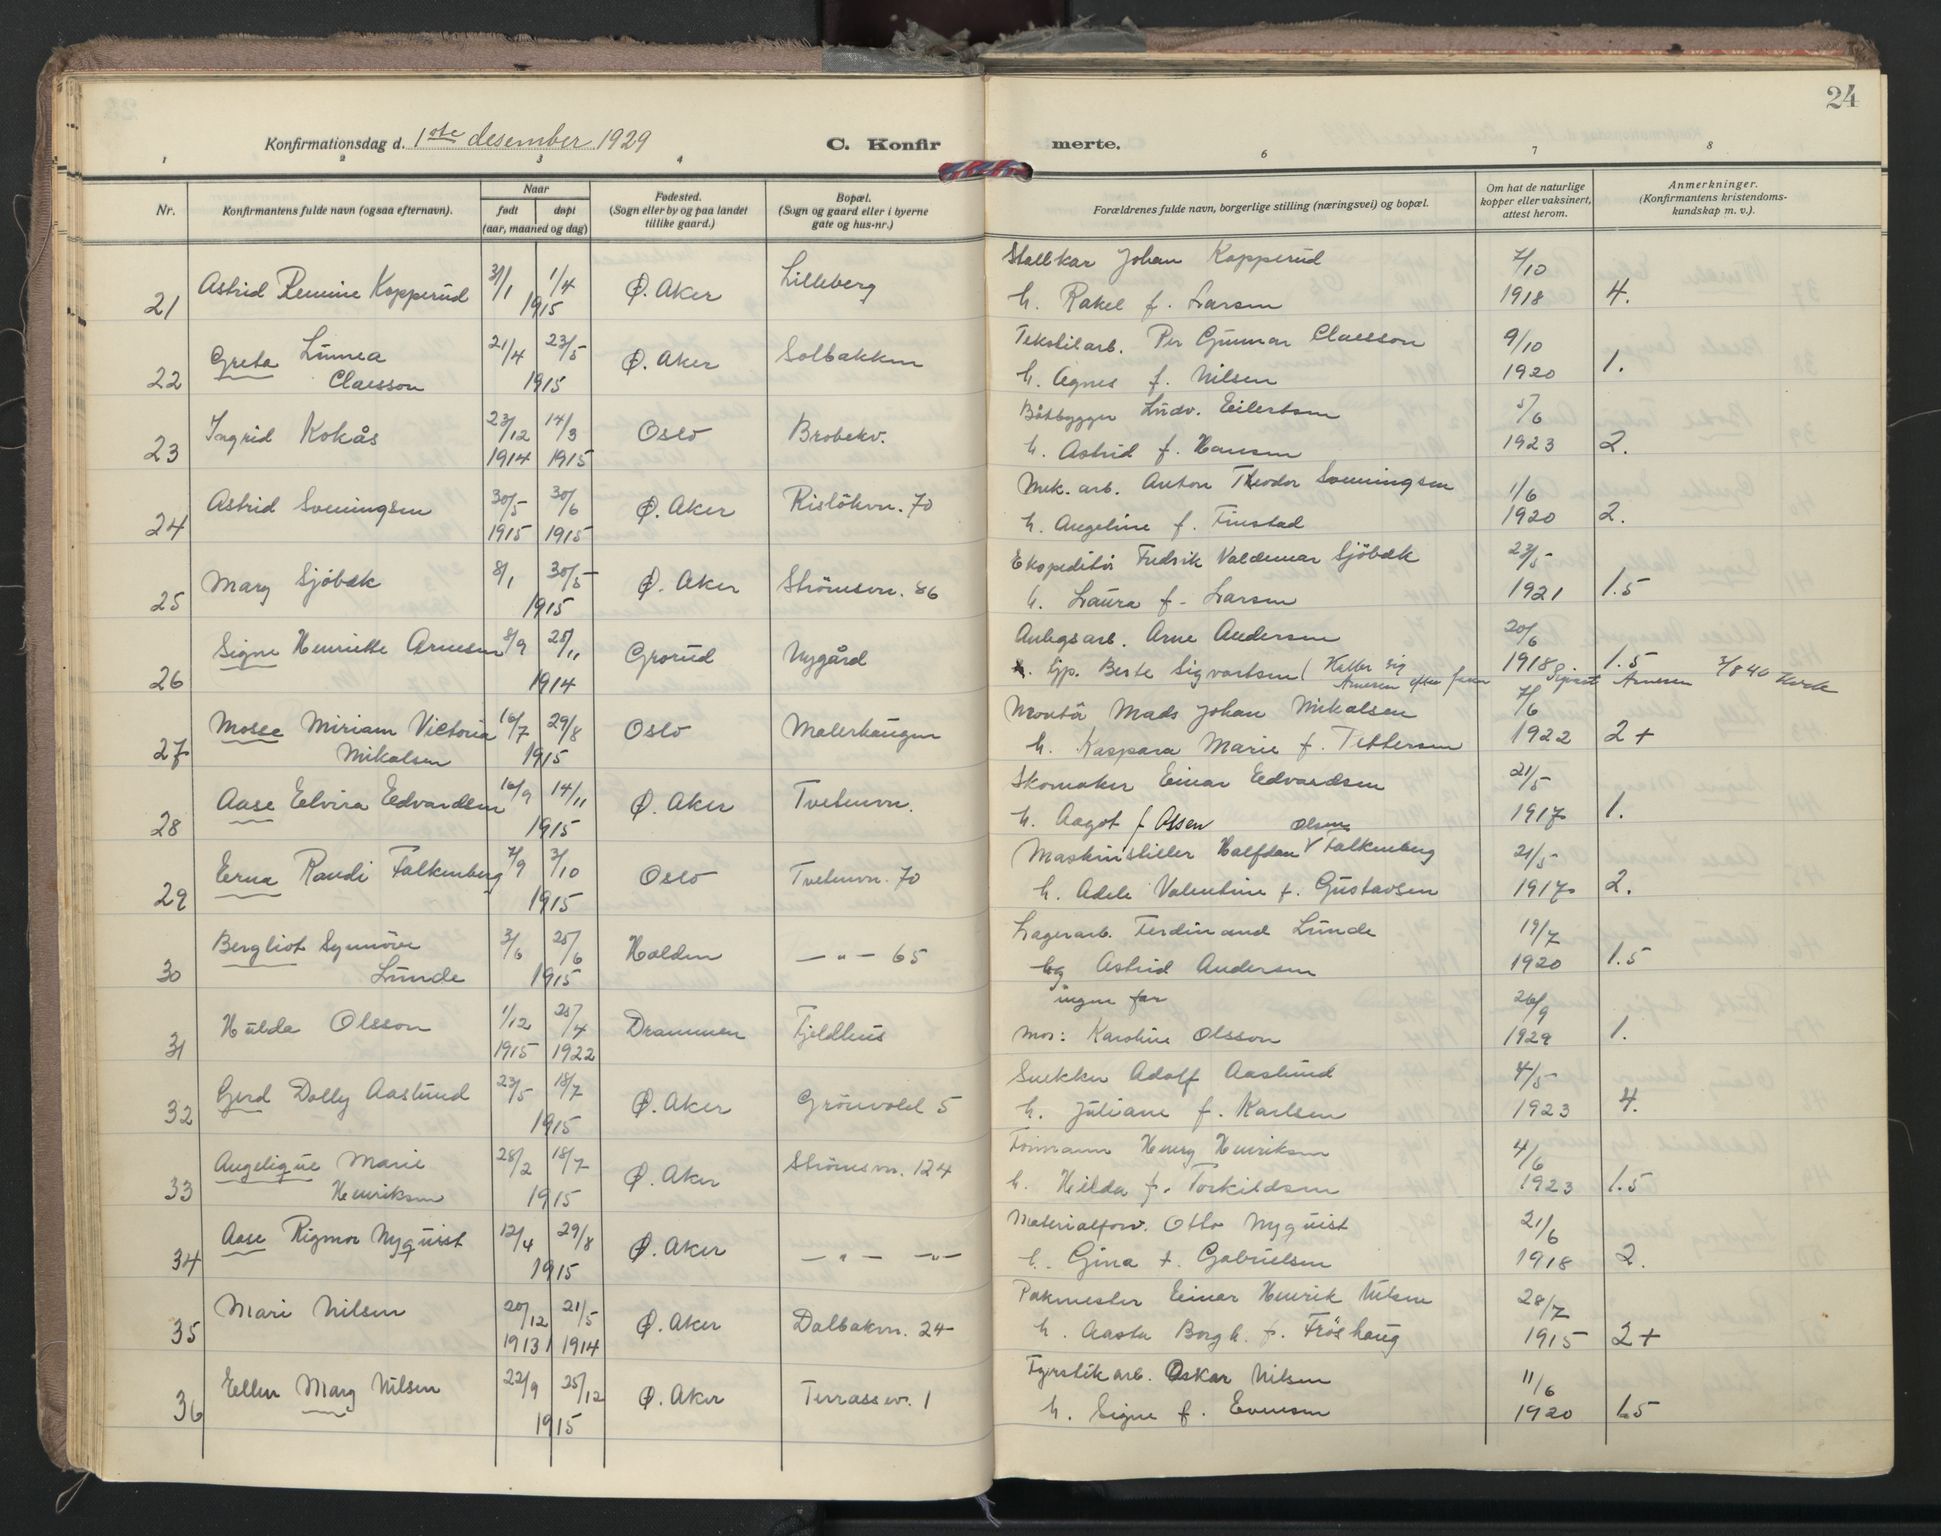 24
Konfirmationsdag d. 1ste desember 1929 C. Konfir merte.
1 2 3 4 6 7 8
Nr. Konfirmantens fulde navn (ogsaa efternavn). Naar født døpt (aar, maaned og dag) Fødested. (Sogn eller by og paa landet tillike gaard.) Bopæl. (Sogn og gaard eller i byerne gate og hus-nr.) Forældrenes fulde navn, borgerlige stilling (næringsvei) og bopæl. Om hat de naturlige kopper eller vaksinert, attest herom. Anmerkninger. (Konfirmantens kristendoms-kundskap m. v.).
3/1 1/4 Lilleberg Stallkar Johan Kopperud 7/10
21 Astrid Kopperud 1915 Ø. Aker h. Rakel f. Larsen 1918 4.
Greta Linnea 21/4 23/5 Ø. Aker Solbakken Tekstilarb. Per Gunnar Claesson 9/10
22 Claesson 1915 h. Agnes f. Nilsen 1920 1.
Ingrid Kokås 23/12 14/3 Oslo Brobekv. Båtbygger Ludv. Eilertsen 5/6
23 1914 1915 h. Astrid f. Hansen 1923 2.
Astrid Sveningsen 30/5 30/6 Ø. Aker Risløkvn. 70 Mek. arb. Anton Theodor Sveningsen 1/6
24 1915 1915 h. Angeline f. Finstad 1920 2.
Mary Sjöbæk 8/1 30/5 Ø. Aker Strömsvn. 86 Ekspeditör Fredrik Valdemar Sjöbæk 23/5
25 1915 h. Laura f. Larsen 1921 1.5
Signe Henriette Arnesen 8/9 25/11 Grorud Nygård Anlegsarb. Arne Andersen 20/6
26 1914 Gjp. Berte Sigvartsen (Kaller sig Arnesen efter faren 1918 1.5 Arnesen
Mosse Miriam Victoria 16/7 29/8 Oslo Malerhaugen Montör Mads Johan Mikalsen 7/6
27 Mikalsen 1915 h. Kaspara Marie f. Pettersen 1922 2+
Aase Elvira Edvardsen 16/9 14/11 Ø. Aker Tvetenvn. Skomaker Einar Edvardsen 21/5
28 1915 h. Aagot f Olsen 1917 1.
Erna Randi Falkenberg 7/9 3/10 Oslo Tvetenvn. 70 Maskinstiller Halfdan Olsen Falkenberg 21/5
29 1915 h. Adele Valentine f. Gustavsen 1917 2.
Bergliot Synnöve 3/6 25/6 Halden — „ — 65 Lagerarb. Ferdinand Lunde 19/7
30 Lunde 1915 og Astrid Andersen 1920 1.5
Hulda Olsson 1/12 25/4 Drammen Fjeldhus ingen far 26/9
31 1915 1922 mor: Karoline Olsson 1929 1.
Gerd Dolly Aaslund 23/5 18/7 Ø. Aker Grönvold 5 Snekker Adolf Aaslund 4/5
32 1915 h. Juliane f. Karlsen 1923 4.
Angelique Marie 28/2 18/7 Ø. Aker Strömsvn. 124 Formann Henry Henriksen 4/6
33 Henriksen 1915 h. Hilda f. Torkildsen 1923 1.5
Aase Rigmor Nyquist 12/4 29/8 Ø. Aker — „ — —„— Materialforv. Otto Nyquist 21/6
34 1915 h. Gina f. Gabrielsen 1918 2.
Mari Nilsen 20/12 21/5 Ø. Aker Dalbakvn. 24 Pakmester Einar Henrik Nilsen 28/7
35 1913 1914 h. Aasta Borgh. f. Fröshaug 1915 2+
Ellen Mary Nilsen 22/9 25/12 Ø. Aker Terrassev. 1 Fyrstikarb. Oskar Nilsen 11/6
36 1915 h. Signe f. Evensen 1920 1.5